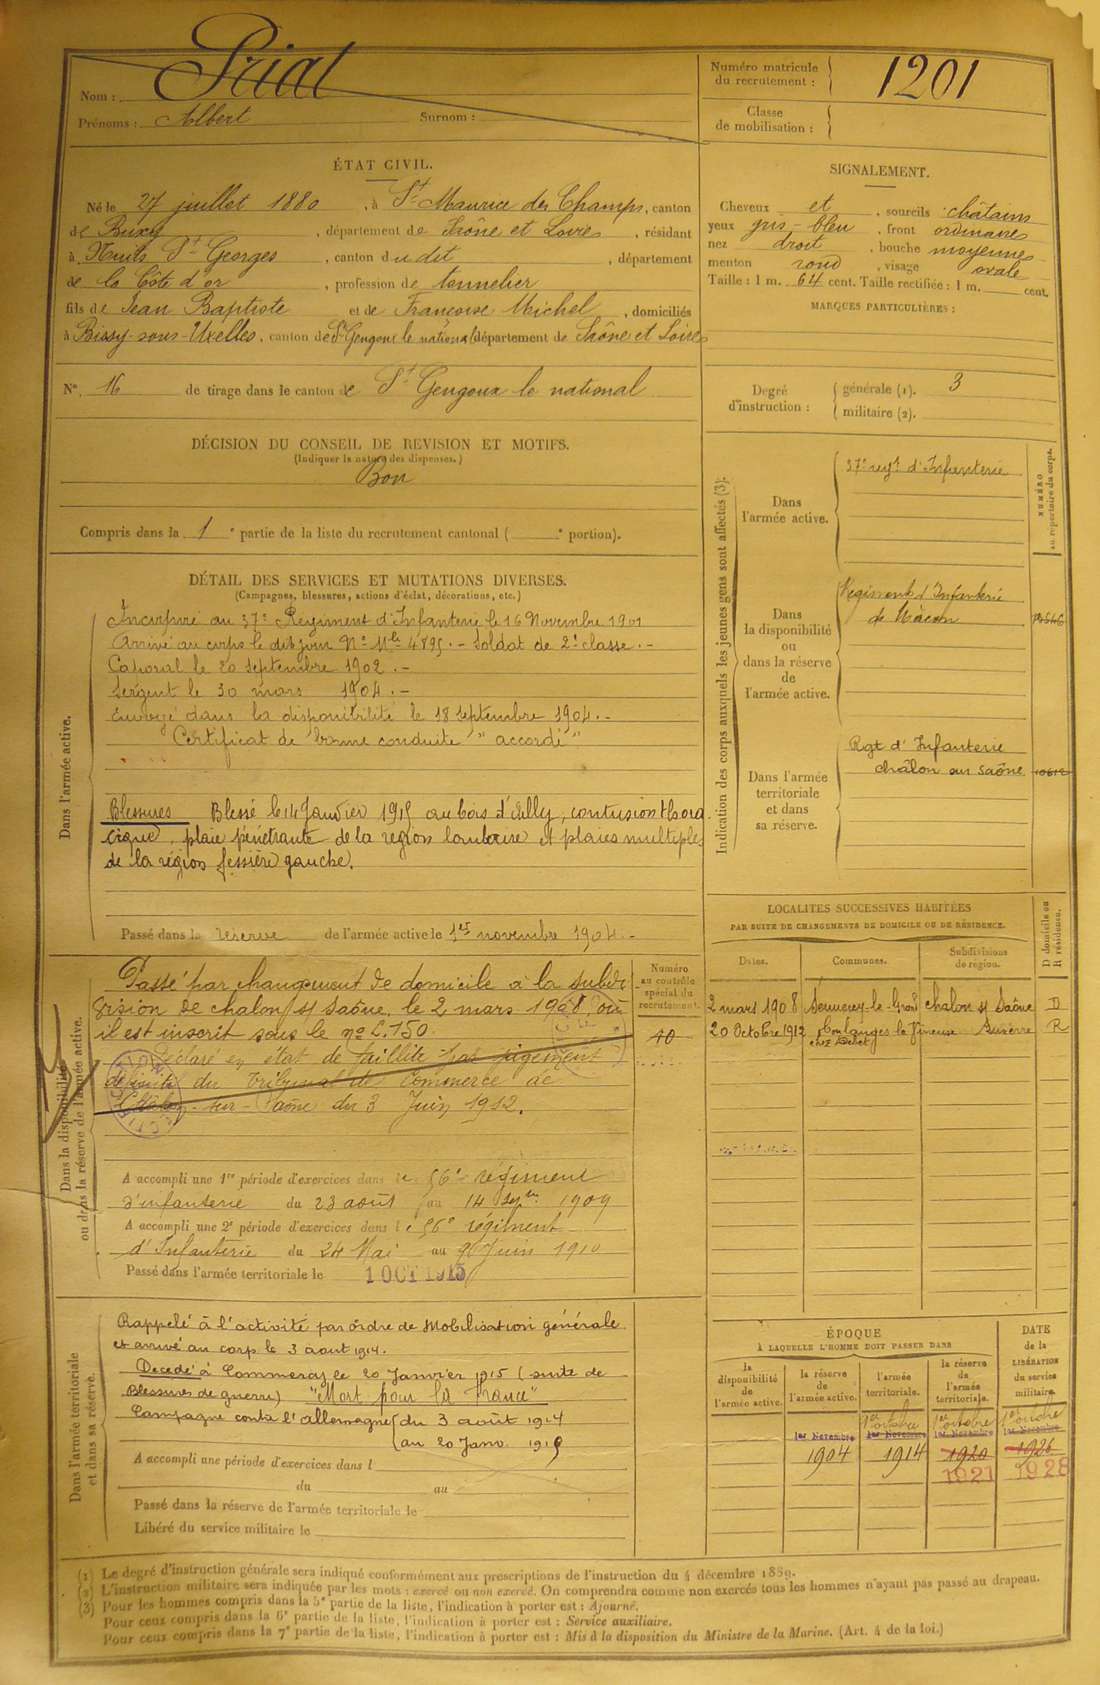 Nom : Priat
Prénoms : Albert Surnom :
Numéro matricule du recrutement : 1201
Classe de mobilisation :
ÉTAT CIVIL.
Né le 27 juillet 1880, à St Maurice des Champs, canton
de Buxy, département de Saône et Loire, résidant
à Nuits St Georges, canton du dit, département
de la Côte d'or, profession de tonnelier
fils de Jean Baptiste et de Françoise Michel, domiciliés
à Bissy-sous-Uxelles, canton de St Gengoux le national département de Saône et Loire
N° 16 de tirage dans le canton de St Gengoux le national
SIGNALEMENT.
Cheveux et, sourcils châtains
yeux gris-bleu, front ordinaire
nez droit, bouche moyenne
menton rond, visage ovale
Taille : 1 m. 64 cent. Taille rectifiée : 1 m. cent.
MARQUES PARTICULIÈRES :
Degré d'instruction : générale (1). 3
militaire (2).
DÉCISION DU CONSEIL DE REVISION ET MOTIFS.
(Indiquer la nature des dispenses.)
Bon
Compris dans la 1e partie de la liste du recrutement cantonal ( e portion).
DÉTAIL DES SERVICES ET MUTATIONS DIVERSES.
(Campagnes, blessures, actions d'éclat, décorations, etc.)
Dans l'armée active.
Incorporé au 37e Régiment d'Infanterie le 16 Novembre 1901
Arrivé au corps le dit jour N° Mle 4895. - Soldat de 2e classe. -
Caporal le 20 septembre 1902. -
Sergent le 30 mars 1904. -
Envoyé dans la disponibilité le 18 septembre 1904. -
Certificat de bonne conduite "accordé"
Blessures Blessé le 14 Janvier 1915 au bois d'Ailly, contusion thora
cique, plaie pénétrante de la region lombaire et plaies multiples
de la région fessière gauche.
Passé dans la réserve de l'armée active le 1er novembre 1904 -
Indication des corps auxquels les jeunes gens sont affectés (3).
NUMÉRO au répertoire du corps.
Dans l'armée active.
37e regt d'Infanterie
Dans la disponibilité ou dans la réserve de l'armée active.
Régiment d'Infanterie
de Mâcon
Dans l'armée territoriale et dans sa réserve.
Rgt d'Infanterie
châlon sur Saône
LOCALITÉS SUCCESSIVES HABITÉES
PAR SUITE DE CHANGEMENTS DE DOMICILE OU DE RÉSIDENCE.
Dates. Communes. Subdivisions de région. D domicile ou R résidence.
2 mars 1908 Sennecey-le-Grand Chalon s/ Saône D
20 Octobre 1912 Coulanges la Vineuse Auxerre R
Dans la disponibilité ou dans la réserve de l'armée active.
Numéro au contrôle spécial du recrutement.
40
Passé par changement de domicile à la subdi
vision de chalon s/ Saône, le 2 mars 1908 où
il est inscrit sous le n° L.150.
Déclaré en état de faillite par jugement
définitif du Tribunal de Commerce de
Châlon-sur-Saône du 3 Juin 1912.
A accompli une 1re période d'exercices dans le 56e régiment
d'infanterie du 23 août au 14 septbre 1909
A accompli une 2e période d'exercices dans le 56e régiment
d'Infanterie du 24 Mai au 9 Juin 1910
Passé dans l'armée territoriale le 1 OCT 1915
Dans l'armée territoriale et dans sa réserve.
Rappelé à l'activité par ordre de Mobilisation générale
et arrivé au corps le 3 aout 1914.
Décédé à Commercy le 20 Janvier 1915 (suite de
Blessures de guerre) "Mort pour la France"
Campagne contre l'allemagne (du 3 août 1914
(au 20 Janv. 1915
A accompli une période d'exercices dans l
du au
Passé dans la réserve de l'armée territoriale le
Libéré du service militaire le
ÉPOQUE
À LAQUELLE L'HOMME DOIT PASSER DANS
DATE de la LIBÉRATION du service militaire.
la disponibilité de l'armée active. la réserve de l'armée active. l'armée territoriale. la réserve de l'armée territoriale.
1er octobre 1er octobre 1er octobre
1er Novembre 1er Novembre 1er Novembre 1er Novembre
1904 1914 1920 1926
1921 1928
(1) Le degré d'instruction générale sera indiqué conformément aux prescriptions de l'instruction du 4 décembre 1889.
(2) L'instruction militaire sera indiquée par les mots : exercé ou non exercé. On comprendra comme non exercés tous les hommes n'ayant pas passé au drapeau.
(3) Pour les hommes compris dans la 5e partie de la liste, l'indication à porter est : Ajourné.
Pour ceux compris dans la 6e partie de la liste, l'indication à porter est : Service auxiliaire.
Pour ceux compris dans la 7e partie de la liste, l'indication à porter est : Mis à la disposition du Ministre de la Marine. (Art. 4 de la loi.)